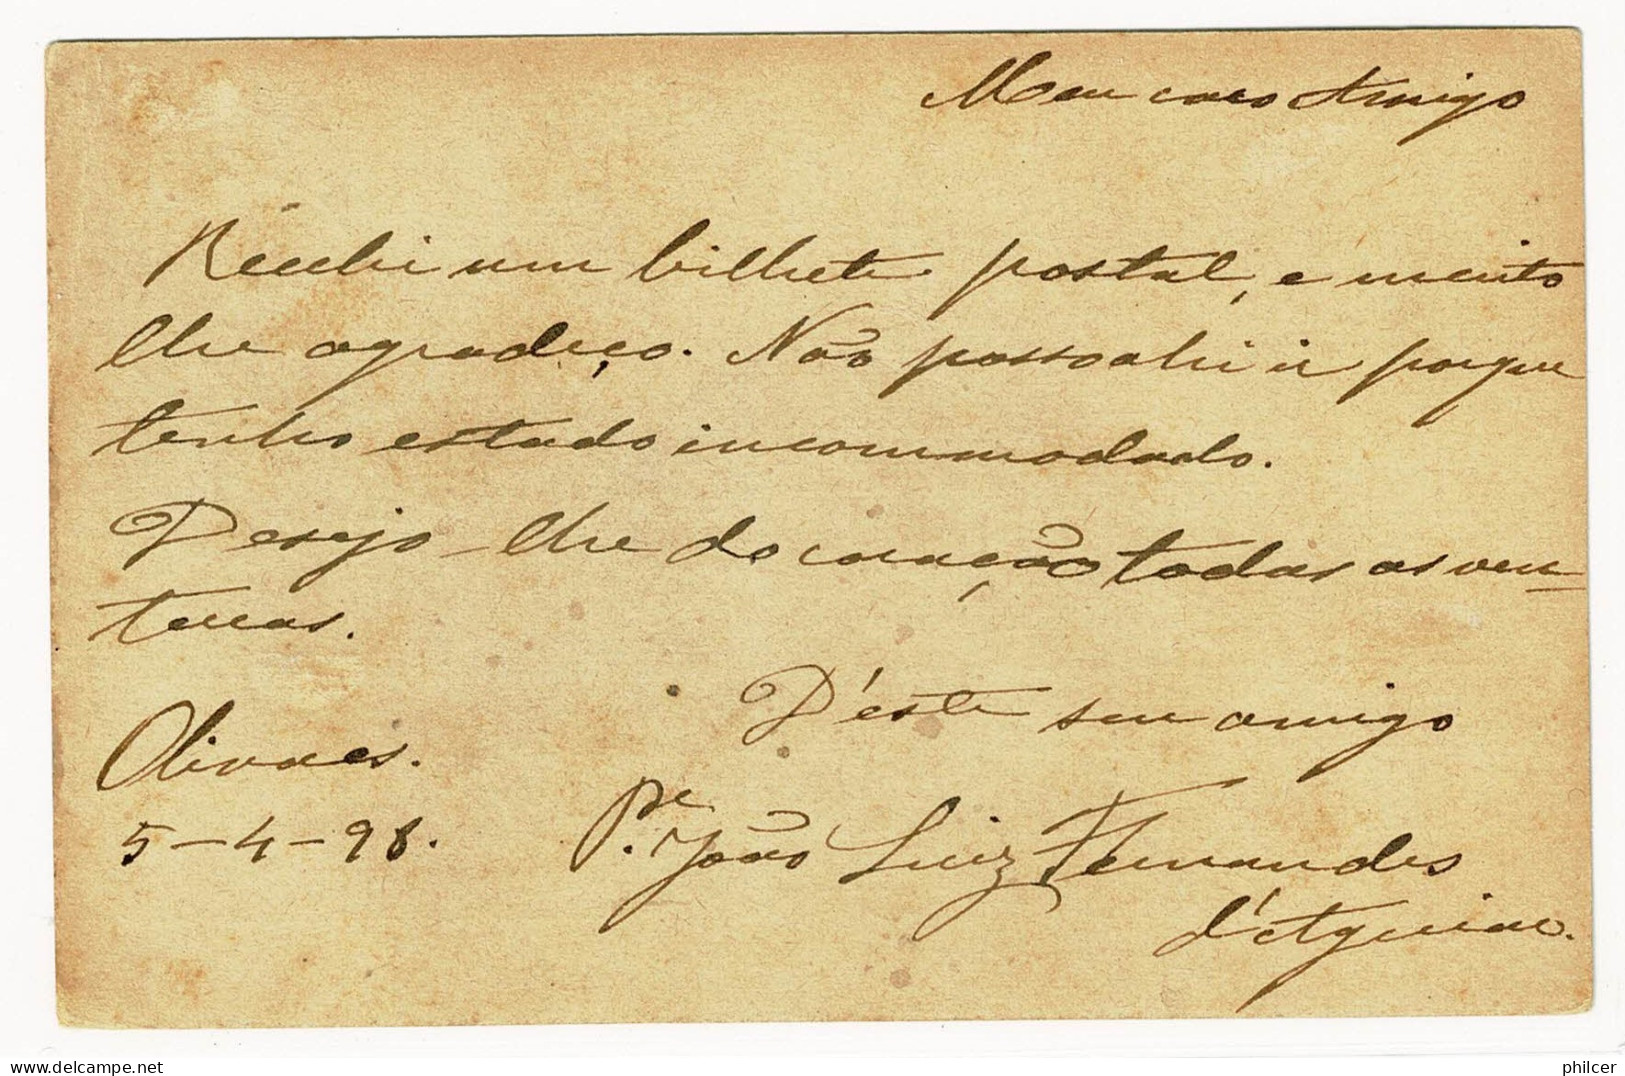 Meu caro Amigo
Recebi um bilhete postal, e muito
lhe agradeço. Não posso ahi ir porque
tenho estado incommodado.
Desejo-lhe do coração todas as ven-
turas.
D'este seu amigo
Olivaes.
5-4-98.
P.e João Luiz Fernandes
d'Aguiar.
philcer